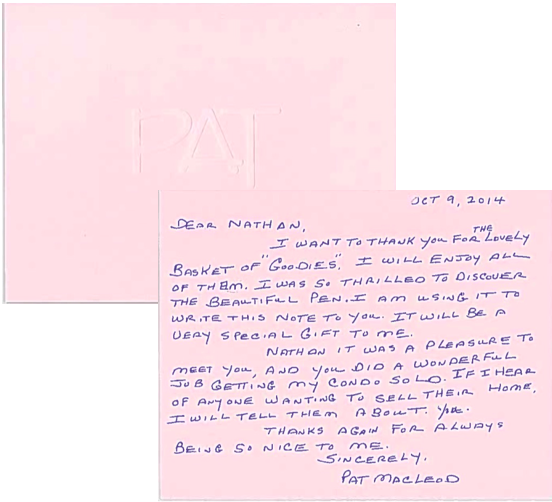 PAT
OCT 9, 2014
DEAR NATHAN,
THE
I WANT TO THANK YOU FOR LOVELY
BASKET OF "GOODIES". I WILL ENJOY ALL
OF THEM. I WAS SO THRILLED TO DISCOVER
THE BEAUTIFUL PEN. I AM USING IT TO
WRITE THIS NOTE TO YOU. IT WILL BE A
VERY SPECIAL GIFT TO ME.
NATHAN IT WAS A PLEASURE TO
MEET YOU, AND YOU DID A WONDERFUL
JOB GETTING MY CONDO SOLD. IF I HEAR
OF ANYONE WANTING TO SELL THEIR HOME,
I WILL TELL THEM ABOUT. YOU.
THANKS AGAIN FOR ALWAYS
BEING SO NICE TO ME.
SINCERELY,
PAT MACLEOD